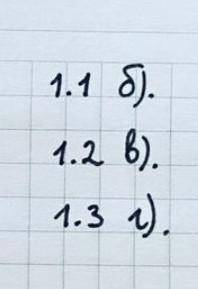 1.1 б).
1.2 в).
1.3 г).